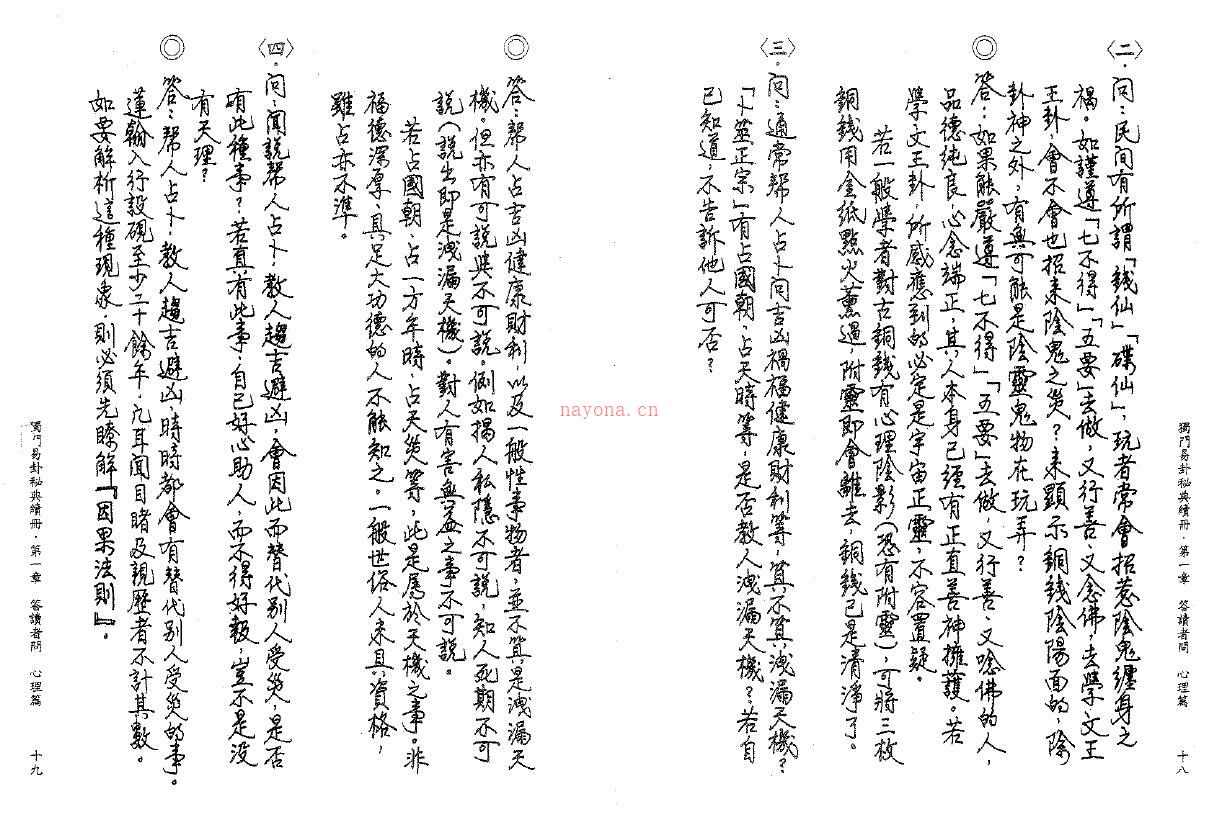 獨門易卦秘典續冊．第一章　答讀者問　心理篇　十八
〈二〉．問：民間有所謂「錢仙」「碟仙」，玩者常會招惹陰鬼纏身之
禍。如謹遵「七不得」「五要」去做，又行善、又念佛，去學文王
王卦，會不會也招來陰鬼之災？來顯示銅錢陰陽面的，除
卦神之外，有無可能是陰靈鬼物在玩弄？
◎答：如果能嚴遵「七不得」「五要」去做，又行善、又唸佛的人，
品德純良，心念端正，其人本身已經有正直善神擁護。若
學文王卦，所感應到的必定是宇宙正靈，不容置疑。
若一般學者對古銅錢有心理陰影（恐有附靈），可將三枚
銅錢用金紙點火薰過，附靈即會離去，銅錢已是清淨了。
〈三〉．問：通常幫人占卜問吉凶禍福健康財利等，算不算洩漏天機？
「卜筮正宗」有占國朝、占天時等，是否教人洩漏天機？若自
己知道，不告訴他人可否？
◎答：幫人占吉凶健康財利，以及一般性事物者，並不算是洩漏天
機。但亦有可說與不可說。例如揭人私隱不可說，知人死期不可
說（說出即是洩漏天機）。對人有害無益之事不可說。
若占國朝、占一方年時、占天災等，此是屬於天機之事。非
福德深厚，具足大功德的人不能知之。一般世俗人未具資格，
雖占亦不準。
〈四〉．問：聞說幫人占卜，教人趨吉避凶，會因此而替代別人受災，是否
有此種事？若真有此事，自己好心助人，而不得好報，豈不是沒
有天理？
◎答：幫人占卜，教人趨吉避凶，時時都會有替代別人受災的事。
蓮翰入行設硯至少二十餘年，凡耳聞目睹及親歷者不計其數。
如要解析這種現象，則必須先瞭解『因果法則』。
獨門易卦秘典續冊．第一章　答讀者問　心理篇　十九
nayona.cn